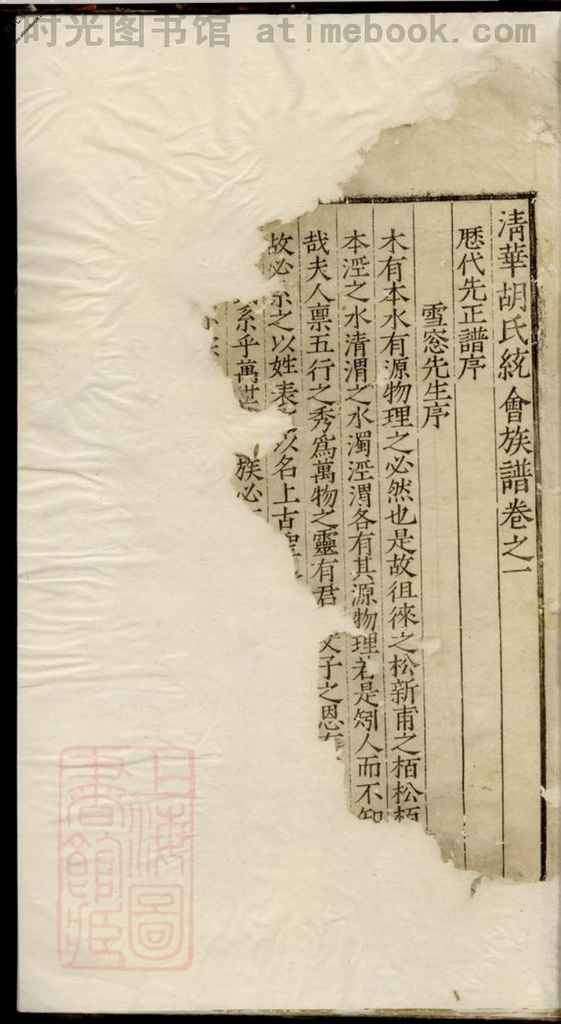 时光图书馆 atimebook.com
清華胡氏統會族譜卷之一
歷代先正譜序
雪窓先生序
木有本水有源物理之必然也是故徂徠之松新甫之栢松栢
本涇之水清渭之水濁涇渭各有其源物理是矧人而不知
哉夫人禀五行之秀爲萬物之靈有君父子之恩
故必之以姓表以名上古
系乎萬世
族必
上海圖書館藏